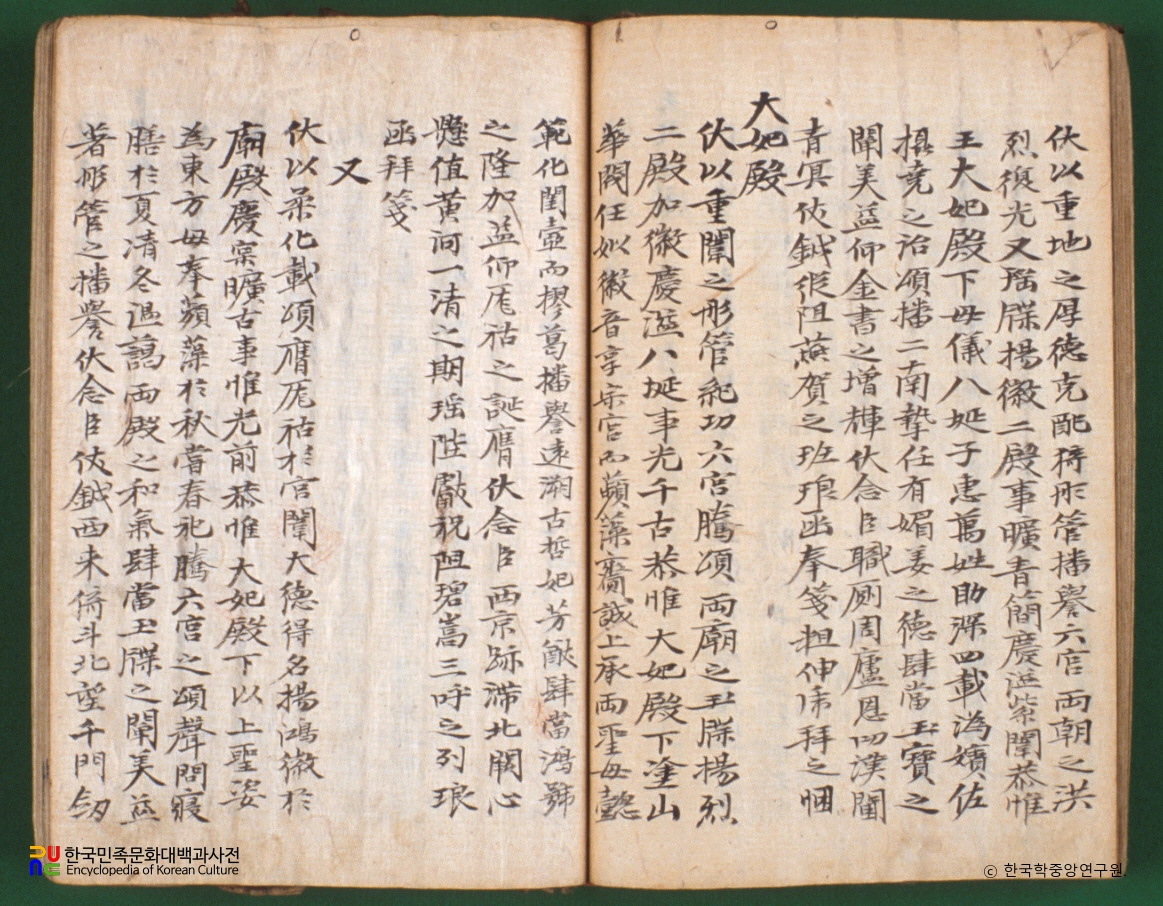 伏以重地之厚德克配猗彤管播譽六宮兩朝之洪
烈復光又瑤牒揚徽二殿事曠青簡慶溢紫闈恭惟
王大妃殿下母儀八埏子惠萬姓助深四載為嬪佐
堯之治頌播二南摯任有媚姜之德肆當玉寶之
闡美益仰金書之增輝伏念臣職厠周廬恩切漢闥
青冥伏鉞縱阻燕賀之班琅函奉箋粗伸席拜之悃
大妃殿
伏以重闈之彤管紀功六宮騰頌兩廟之玉牒揚烈
二殿加徽慶溢八埏事光千古恭惟大妃殿下塗山
華閥任姒徽音享宗宮而蘋藻齎誠上承兩聖母懿
範化閨壼而樛葛播譽遠溯古哲妃芳猷肆當鴻號
之隆加益仰厖祜之誕膺伏念臣西京跡滯北闕心
懸值黃河一清之期瑤陛獻祝阻碧嵩三呼之列琅
函拜箋
又
伏以柔化載頌膺厖祜於宮闈大德得名揚鴻徽於
廟殿慶深曠古事惟光前恭惟大妃殿下以上聖姿
為東方母奉蘋藻於秋嘗春祀騰六宮之頌聲問寢
膳於夏清冬溫藹兩殿之和氣肆當玉牒之闡美益
著彤管之播譽伏念臣仗鉞西來倚斗北望千門
한국민족문화대백과사전
Encyclopedia of Korean Culture
© 한국학중앙연구원